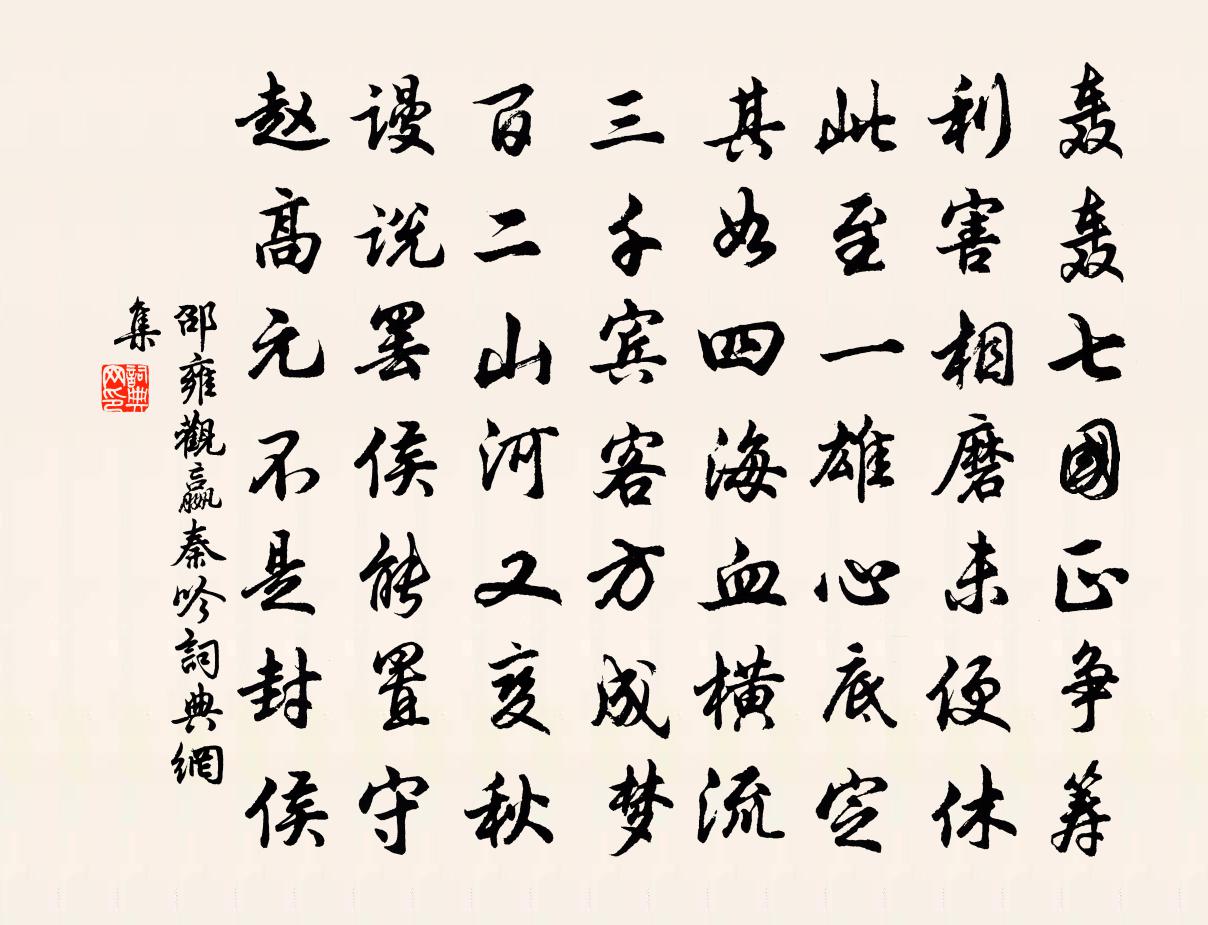 轰轰七國正争筹
利害相磨未便休
此至一雄心底定
其如四海血横流
三千宾客方成梦
百二山河又变秋
谩说罢侯能置守
赵高元不是封侯
邵雍觀嬴秦吟詞典網
集
詞典網印